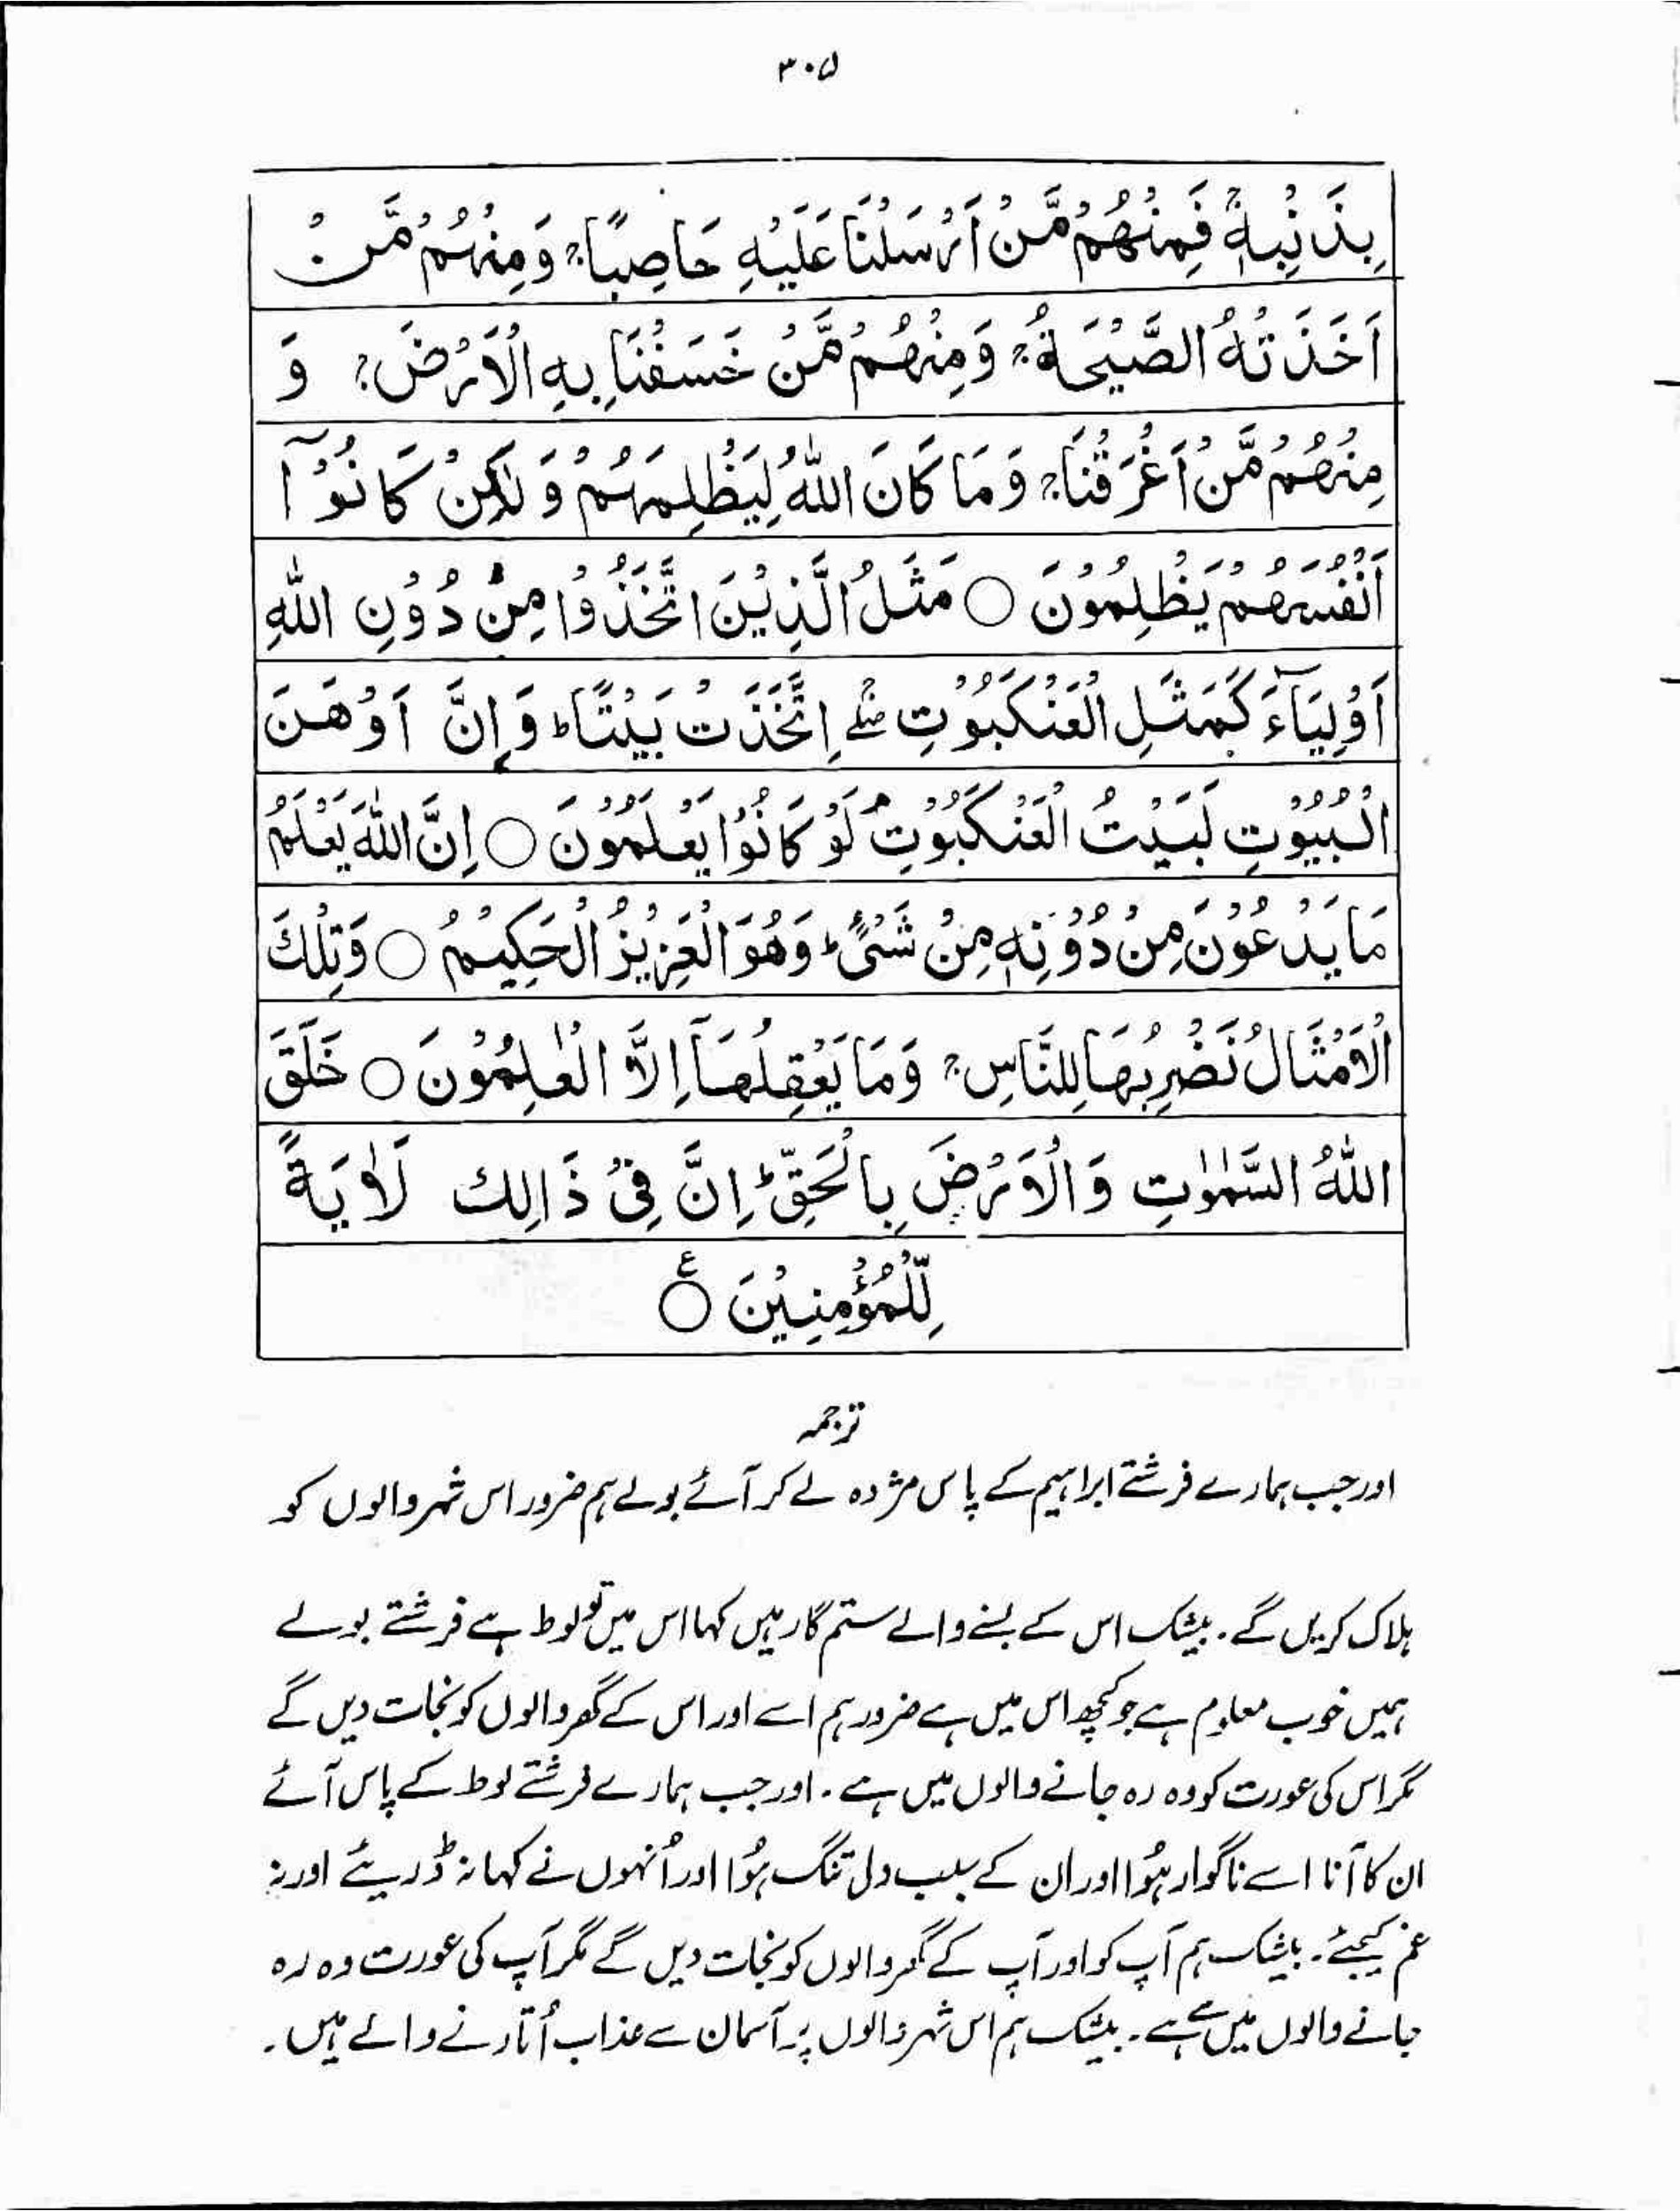 ۳۰۵
بِذَنْۢبِهٖۚ فَمِنْهُمْ مَّنْ اَرْسَلْنَا عَلَیْهِ حَاصِبًاۚ وَمِنْهُمْ مَّنْ
اَخَذَتْهُ الصَّیْحَةُۚ وَمِنْهُمْ مَّنْ خَسَفْنَا بِهِ الْاَرْضَۚ وَ
مِنْهُمْ مَّنْ اَغْرَقْنَاۚ وَمَا كَانَ اللّٰهُ لِیَظْلِمَهُمْ وَلٰكِنْ كَانُوْۤا
اَنْفُسَهُمْ یَظْلِمُوْنَ ○ مَثَلُ الَّذِیْنَ اتَّخَذُوْا مِنْ دُوْنِ اللّٰهِ
اَوْلِیَآءَ كَمَثَلِ الْعَنْكَبُوْتِ ۖۚ اِتَّخَذَتْ بَیْتًاؕ وَاِنَّ اَوْهَنَ
الْبُیُوْتِ لَبَیْتُ الْعَنْكَبُوْتِۘ لَوْ كَانُوْا یَعْلَمُوْنَ ○ اِنَّ اللّٰهَ یَعْلَمُ
مَا یَدْعُوْنَ مِنْ دُوْنِهٖ مِنْ شَیْءٍؕ وَهُوَ الْعَزِیْزُ الْحَكِیْمُ ○ وَتِلْكَ
الْاَمْثَالُ نَضْرِبُهَا لِلنَّاسِۚ وَمَا یَعْقِلُهَاۤ اِلَّا الْعٰلِمُوْنَ ○ خَلَقَ
اللّٰهُ السَّمٰوٰتِ وَالْاَرْضَ بِالْحَقِّؕ اِنَّ فِیْ ذَالِك لَاٰیَةً
لِّلْمُؤْمِنِیْنَ ○ع
ترجمہ
اور جب ہمارے فرشتے ابراہیم کے پاس مژدہ لے کر آئے بولے ہم ضرور اس شہر والوں کو
ہلاک کریں گے۔ بیشک اس کے بسنے والے ستم گار ہیں کہا اس میں تو لوط ہے فرشتے بولے
ہمیں خوب معلوم ہے جو کچھ اس میں ہے ضرور ہم اسے اور اس کے گھر والوں کو نجات دیں گے
مگر اس کی عورت کو وہ رہ جانے والوں میں ہے۔ اور جب ہمارے فرشتے لوط کے پاس آئے
ان کا آنا اسے ناگوار ہُوا اور ان کے سبب دل تنگ ہُوا اور اُنہوں نے کہا نہ ڈریئے اور نہ
غم کیجئے۔ بیشک ہم آپ کو اور آپ کے گھر والوں کو نجات دیں گے مگر آپ کی عورت وہ رہ
جانے والوں میں سے ہے۔ بیشک ہم اس شہر والوں پر آسمان سے عذاب اُتارنے والے ہیں۔